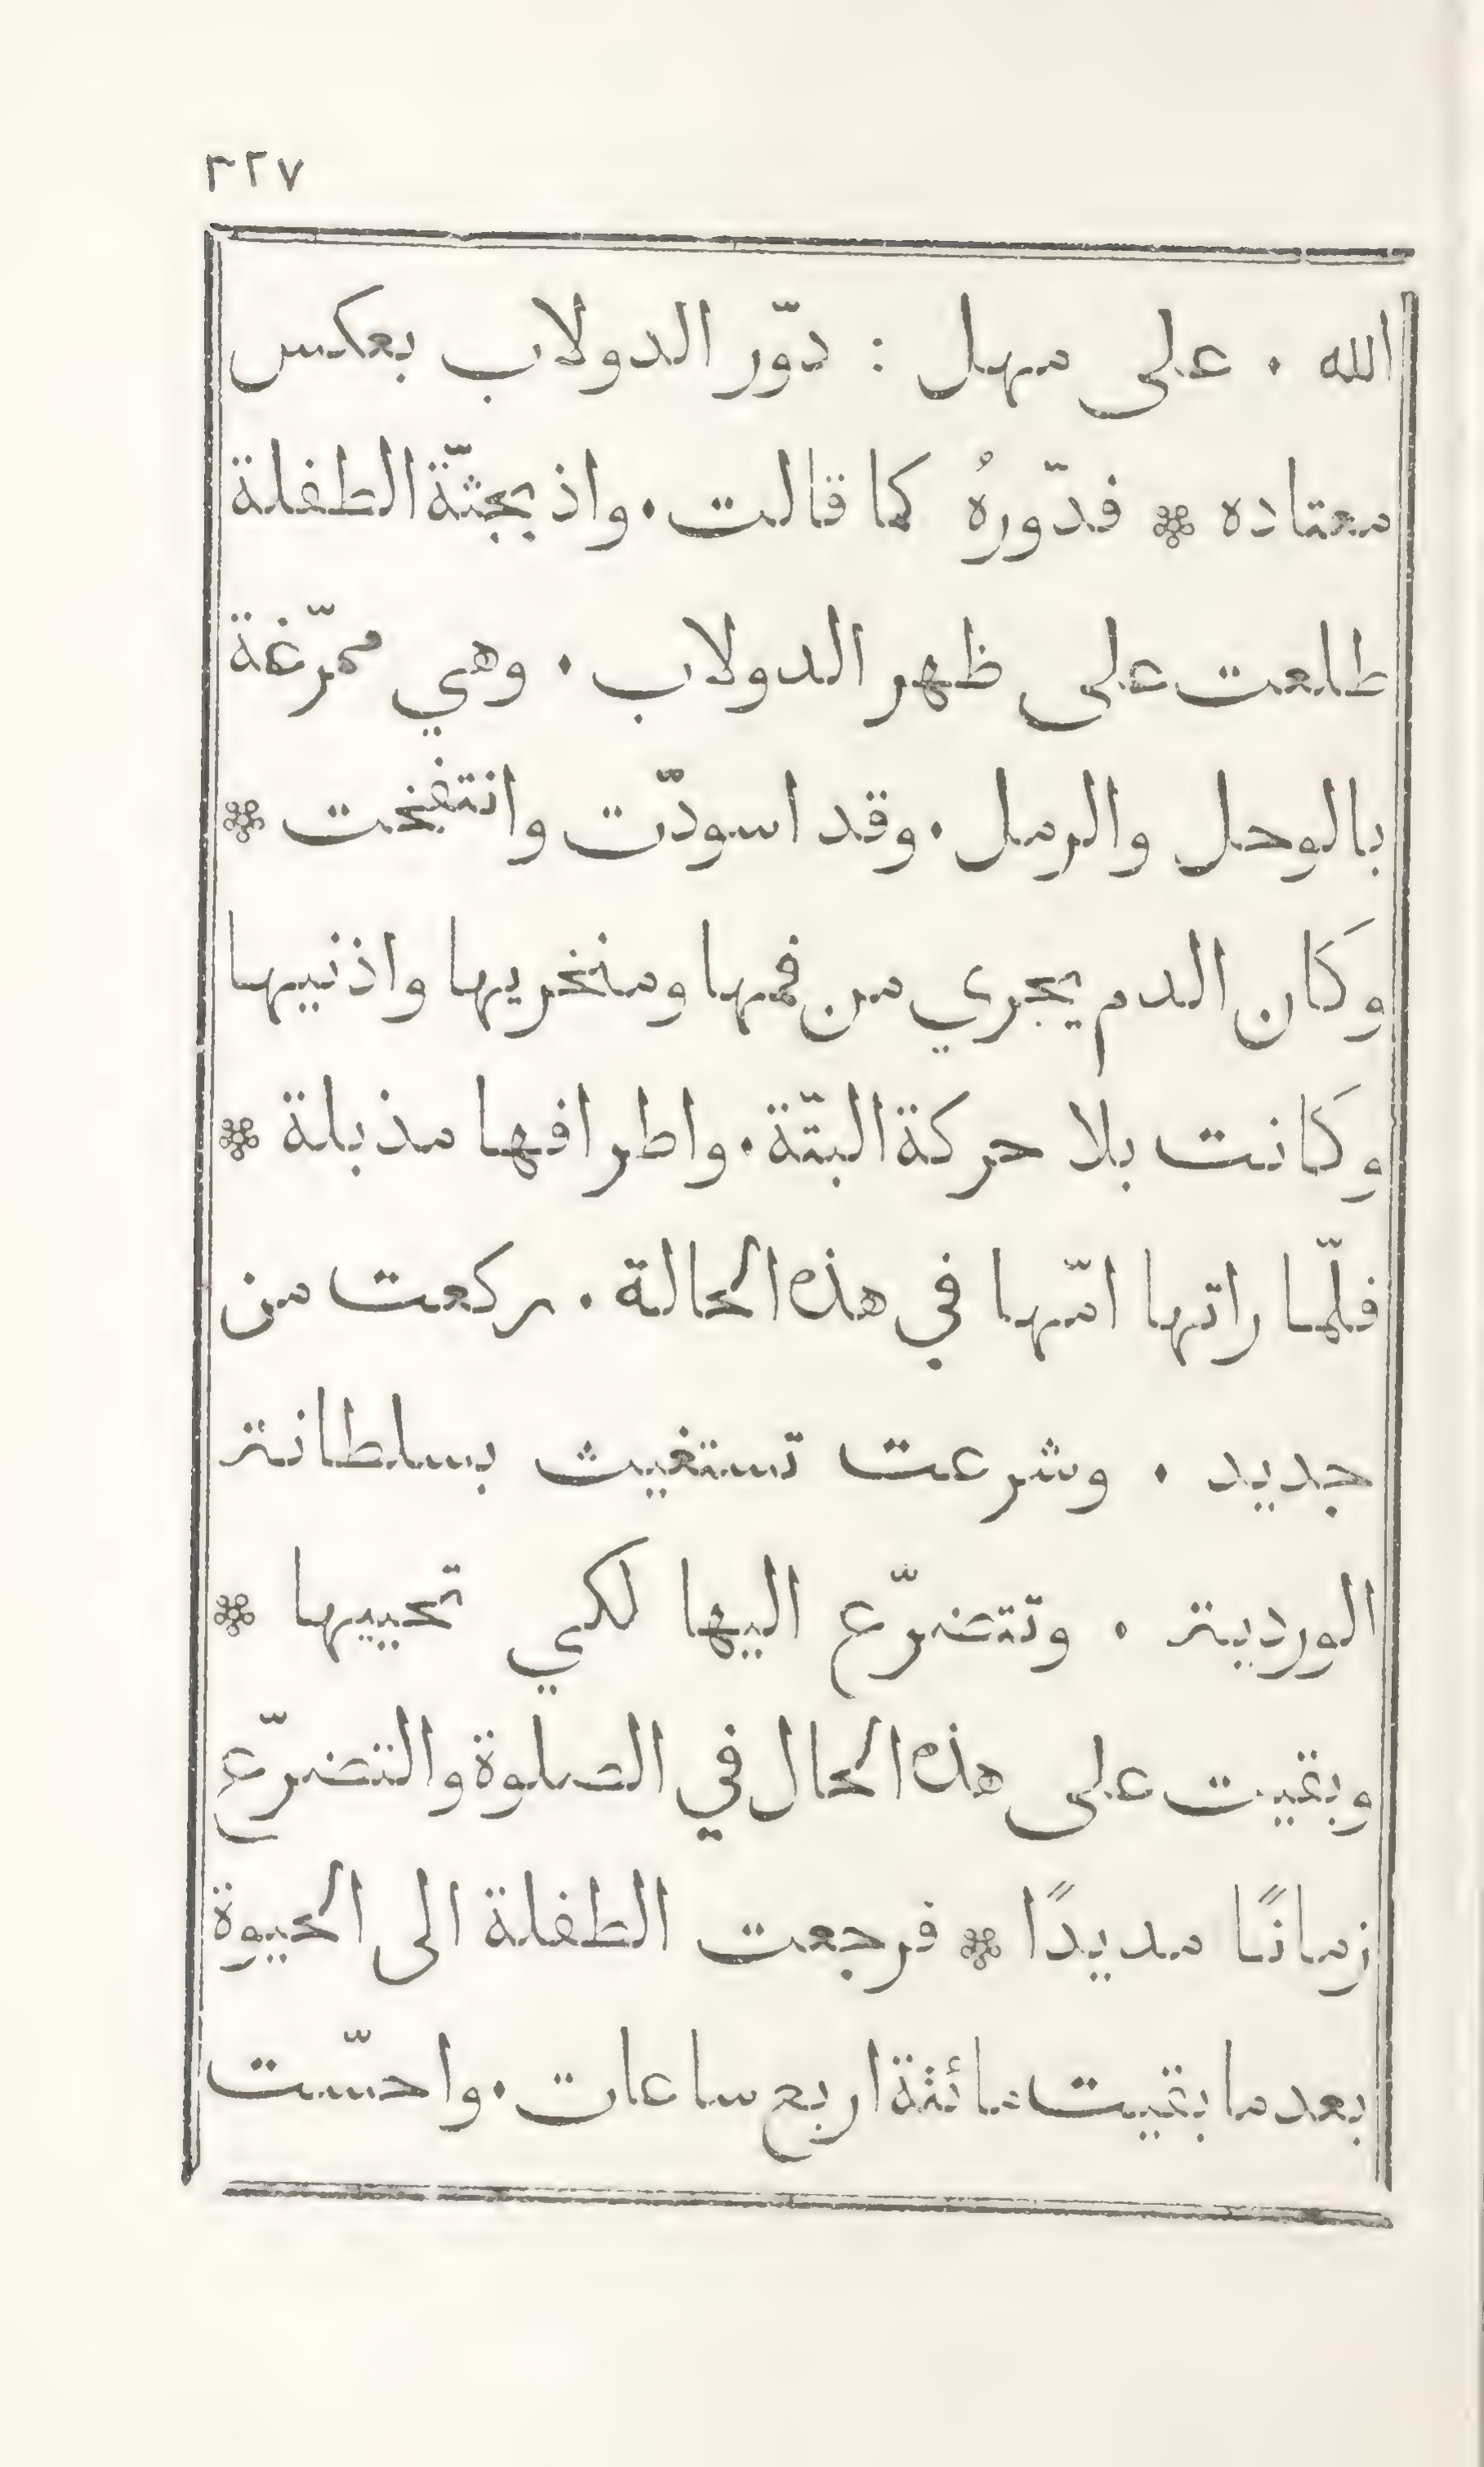 ٣٢٧
الله ٠ على مهل : دوّر الدولاب بعكس
معتاده ※ فدّورهُ كما قالت ٠ واذ بجثّة الطفلة
طلعت على ظهر الدولاب ٠ وهي ممرّغة
بالوحل والرمل ٠ وقد اسودّت وانتفخت ※
وكَان الدم يجري من فمها ومنخريها واذنيها
وكَانت بلا حركة البتّة ٠ واطرافها مذبلة ※
فلّما راتها امّها في هذه الحالة ٠ ركعت من
جديد ٠ وشرعت تستغيث بسلطانة
الوردية ٠ وتتضرّع اليها لكي تحييها ※
وبقيت على هذه الحال في الصلوة والتضرّع
زمانًا مديدًا ※ فرجعت الطفلة الى الحيوة
بعدما بقيت مائتة اربع ساعات ٠ واحسّت